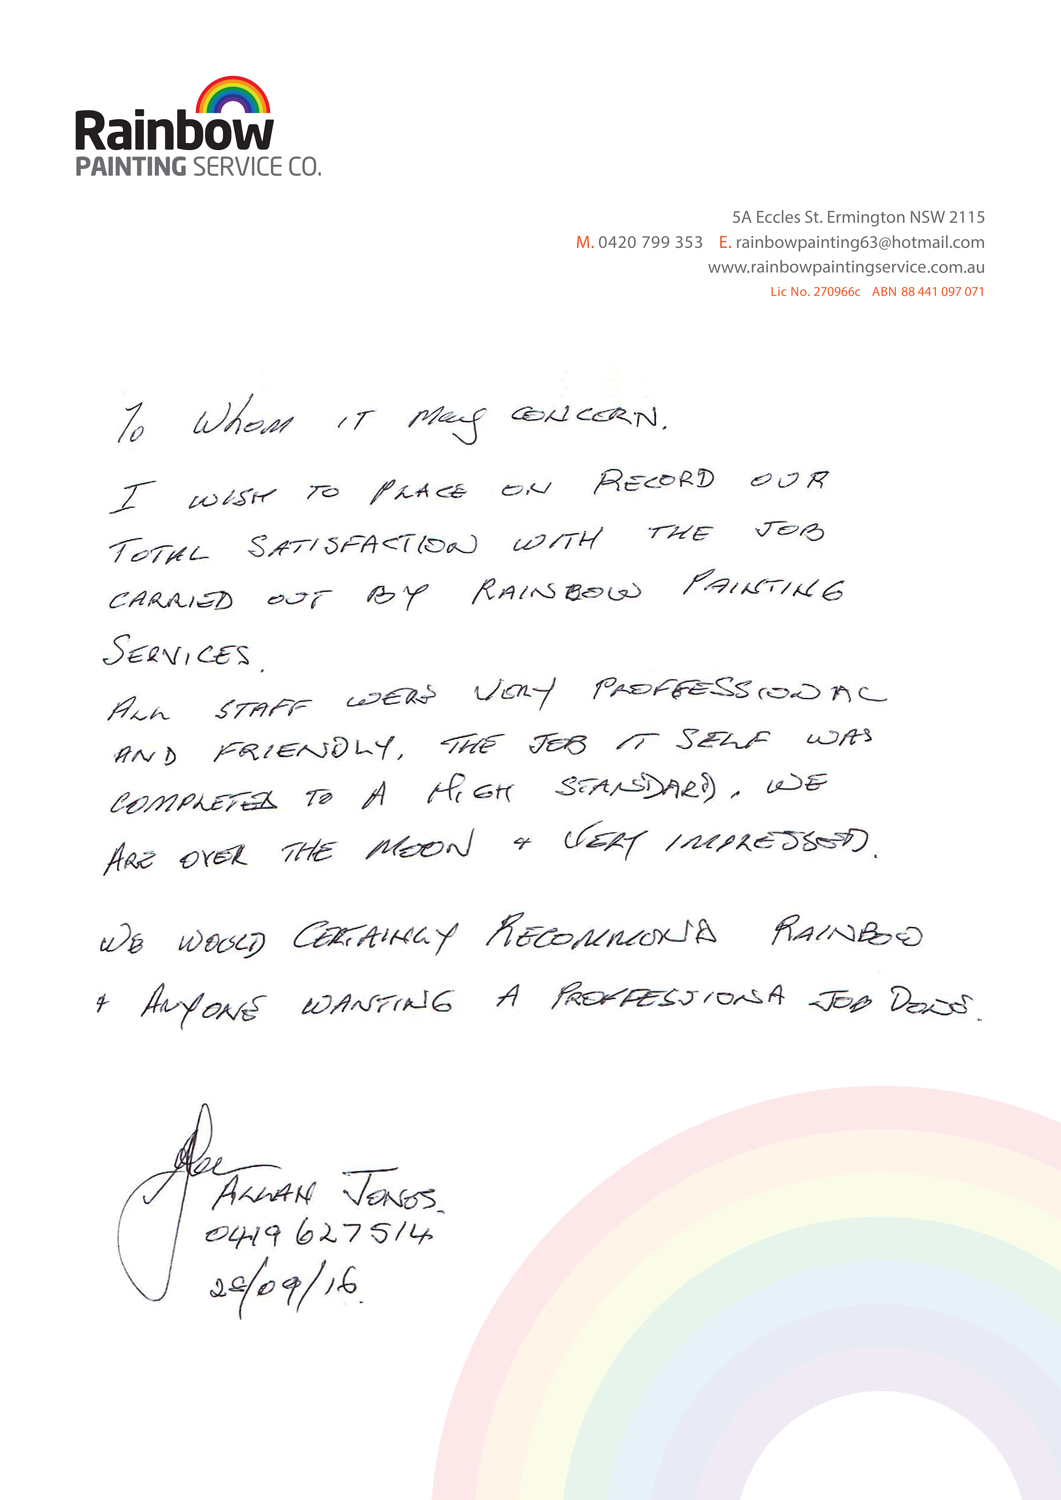 Rainbow
PAINTING SERVICE CO.
5A Eccles St. Ermington NSW 2115
M. 0420 799 353 E. rainbowpainting63@hotmail.com
www.rainbowpaintingservice.com.au
Lic No. 270966c ABN 88 441 097 071
To Whom IT May CONCERN.
I WISH TO PLACE ON RECORD OUR
TOTAL SATISFACTION WITH THE JOB
CARRIED OUT BY RAINBOW PAINTING
SERVICES.
ALL STAFF WERE VERY PROFFESSIONAL
AND FRIENDLY, THE JOB IT SELF WAS
COMPLETED TO A HIGH STANDARD, WE
ARE OVER THE MOON & VERY IMPRESSED.
WE WOULD CERTAINLY RECOMMOND RAINBOW
& ANYONE WANTING A PROFFESSIONA JOB DONE.
ALLAN JONES.
0419 627514
/09/16.